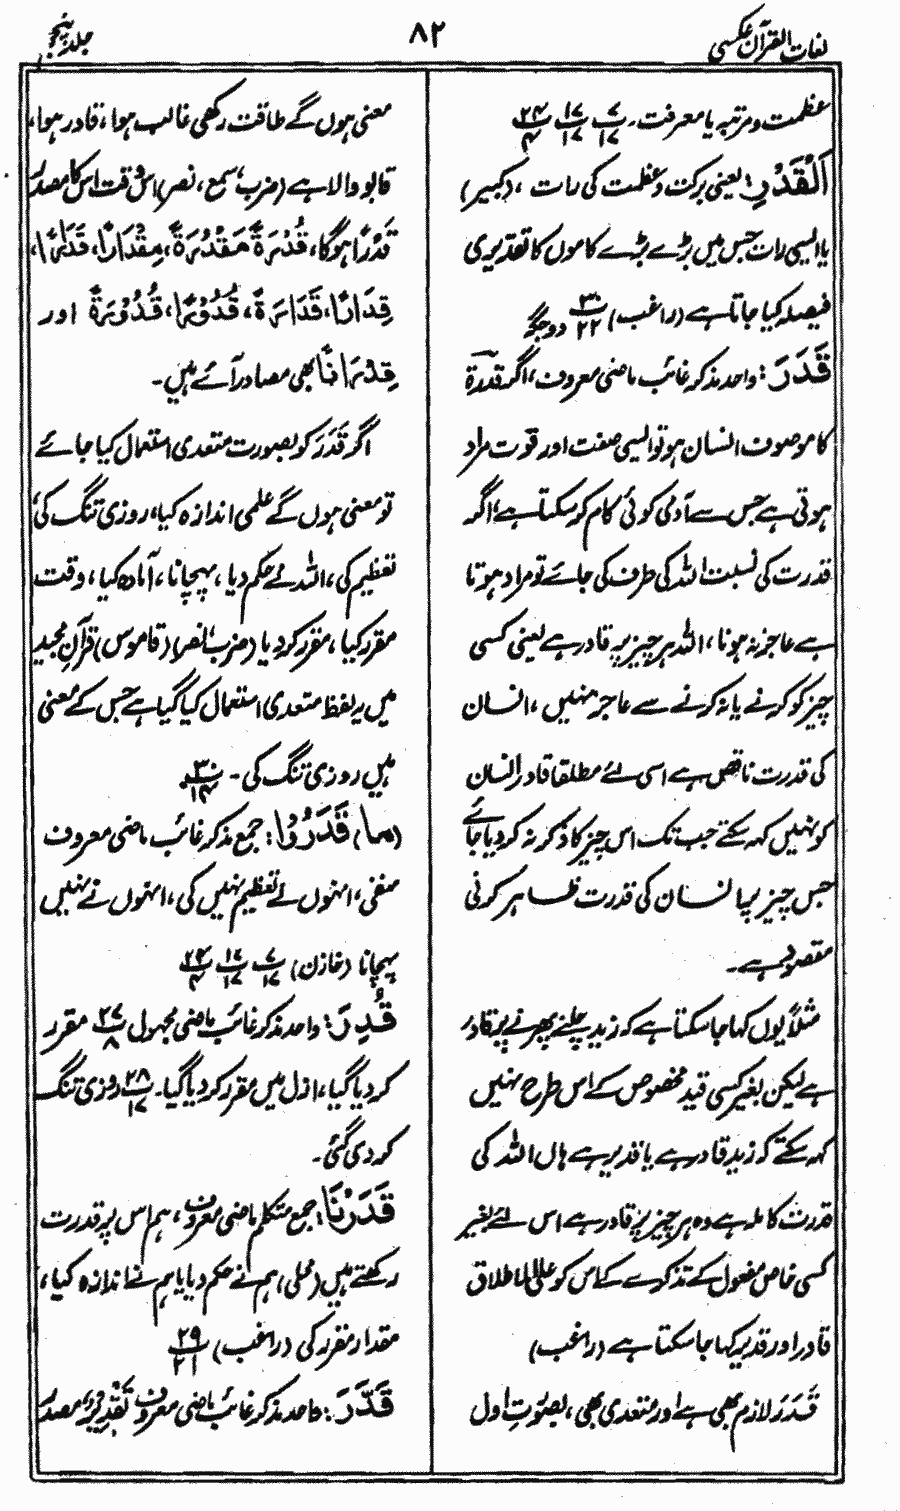 لغات القرآن عکسی
۸۲
جلد پنجم
عظمت و مرتبہ یا معرفت۔ ۷/۱۷ ۱۷/۱۷ ۲۴/۴
اَلْقَدْرِ: یعنی برکت و عظمت کی رات، (کبیر)
یا ایسی رات جس میں بڑے بڑے کاموں کا تقدیری
فیصلہ کیا جاتا ہے (راغب) ۳۰/۲۲ دو جگہ
قَدَرَ: واحد مذکر غائب ماضی معروف، اگر قدرۃ
کا موصوف انسان ہو تو ایسی صفت اور قوت مراد
ہوتی ہے جس سے آدمی کوئی کام کر سکتا ہے، اگر
قدرت کی نسبت اللہ کی طرف کی جائے تو مراد ہوتا
ہے عاجز نہ ہونا، اللہ ہر چیز پر قادر ہے یعنی کسی
چیز کو کرنے یا نہ کرنے سے عاجز نہیں، انسان
کی قدرت ناقص ہے اسی لئے مطلقاً قادر انسان
کو نہیں کہہ سکتے جب تک اس چیز کا ذکر نہ کر دیا جائے
جس چیز پر انسان کی قدرت ظاہر کرنی
مقصود ہے۔
مثلاً یوں کہا جا سکتا ہے کہ زید چلنے پھرنے پر قادر
ہے لیکن بغیر کسی قید مخصوص کے اس طرح نہیں
کہہ سکتے کہ زید قادر ہے یا قدیر ہے ہاں اللہ کی
قدرت کاملہ ہے وہ ہر چیز پر قادر ہے اس لئے بغیر
کسی خاص مفعول کے تذکرے کے اس کو علی الاطلاق
قادر اور قدیر کہا جا سکتا ہے (راغب)
قَدَرَ لازم بھی ہے اور متعدی بھی، بصورت اول
معنی ہوں گے طاقت رکھی غالب ہوا، قادر ہوا،
قابو والا ہے (ضرب، سمع، نصر) اس وقت اس کا مصدر
قَدْرًا ہو گا، قُدْرَةً مَقْدُرَةً، مِقْدَارًا، قَدَرًا،
قِدَارًا، قَدَارَةً، قُدُوْرًا، قُدُوْرَةً اور
قِدْرَانًا بھی مصادر آئے ہیں۔
اگر قَدَرَ کو بصورت متعدی استعمال کیا جائے
تو معنی ہوں گے علمی اندازہ کیا، روزی تنگ کی،
تعظیم کی، اللہ نے حکم دیا، پہچانا، آمادہ کیا، وقت
مقرر کیا، مقرر کر دیا (ضرب نصر) (قاموس) قرآن مجید
میں یہ لفظ متعدی استعمال کیا گیا ہے جس کے معنی
ہیں روزی تنگ کی۔ ۳۰/۱۴
(ما) قَدَرُوْا: جمع مذکر غائب ماضی معروف
منفی، انہوں نے تعظیم نہیں کی، انہوں نے نہیں
پہچانا (خازن) ۷/۱۷ ۱۷/۱۷ ۲۴/۴
قُدِرَ: واحد مذکر غائب ماضی مجہول ۲۷/۸ مقرر
کر دیا گیا، ازل میں مقرر کر دیا گیا۔ ۲۸/۱۷ روزی تنگ
کر دی گئی۔
قَدَرْنَا: جمع متکلم ماضی معروف، ہم اس پر قدرت
رکھتے ہیں (محلی) ہم نے حکم دیا یا ہم نے اندازہ کیا،
مقدار مقرر کی (راغب) ۲۹/۲۱
قَدَّرَ: واحد مذکر غائب ماضی معروف تَقْدِیْرٌ، مصدر